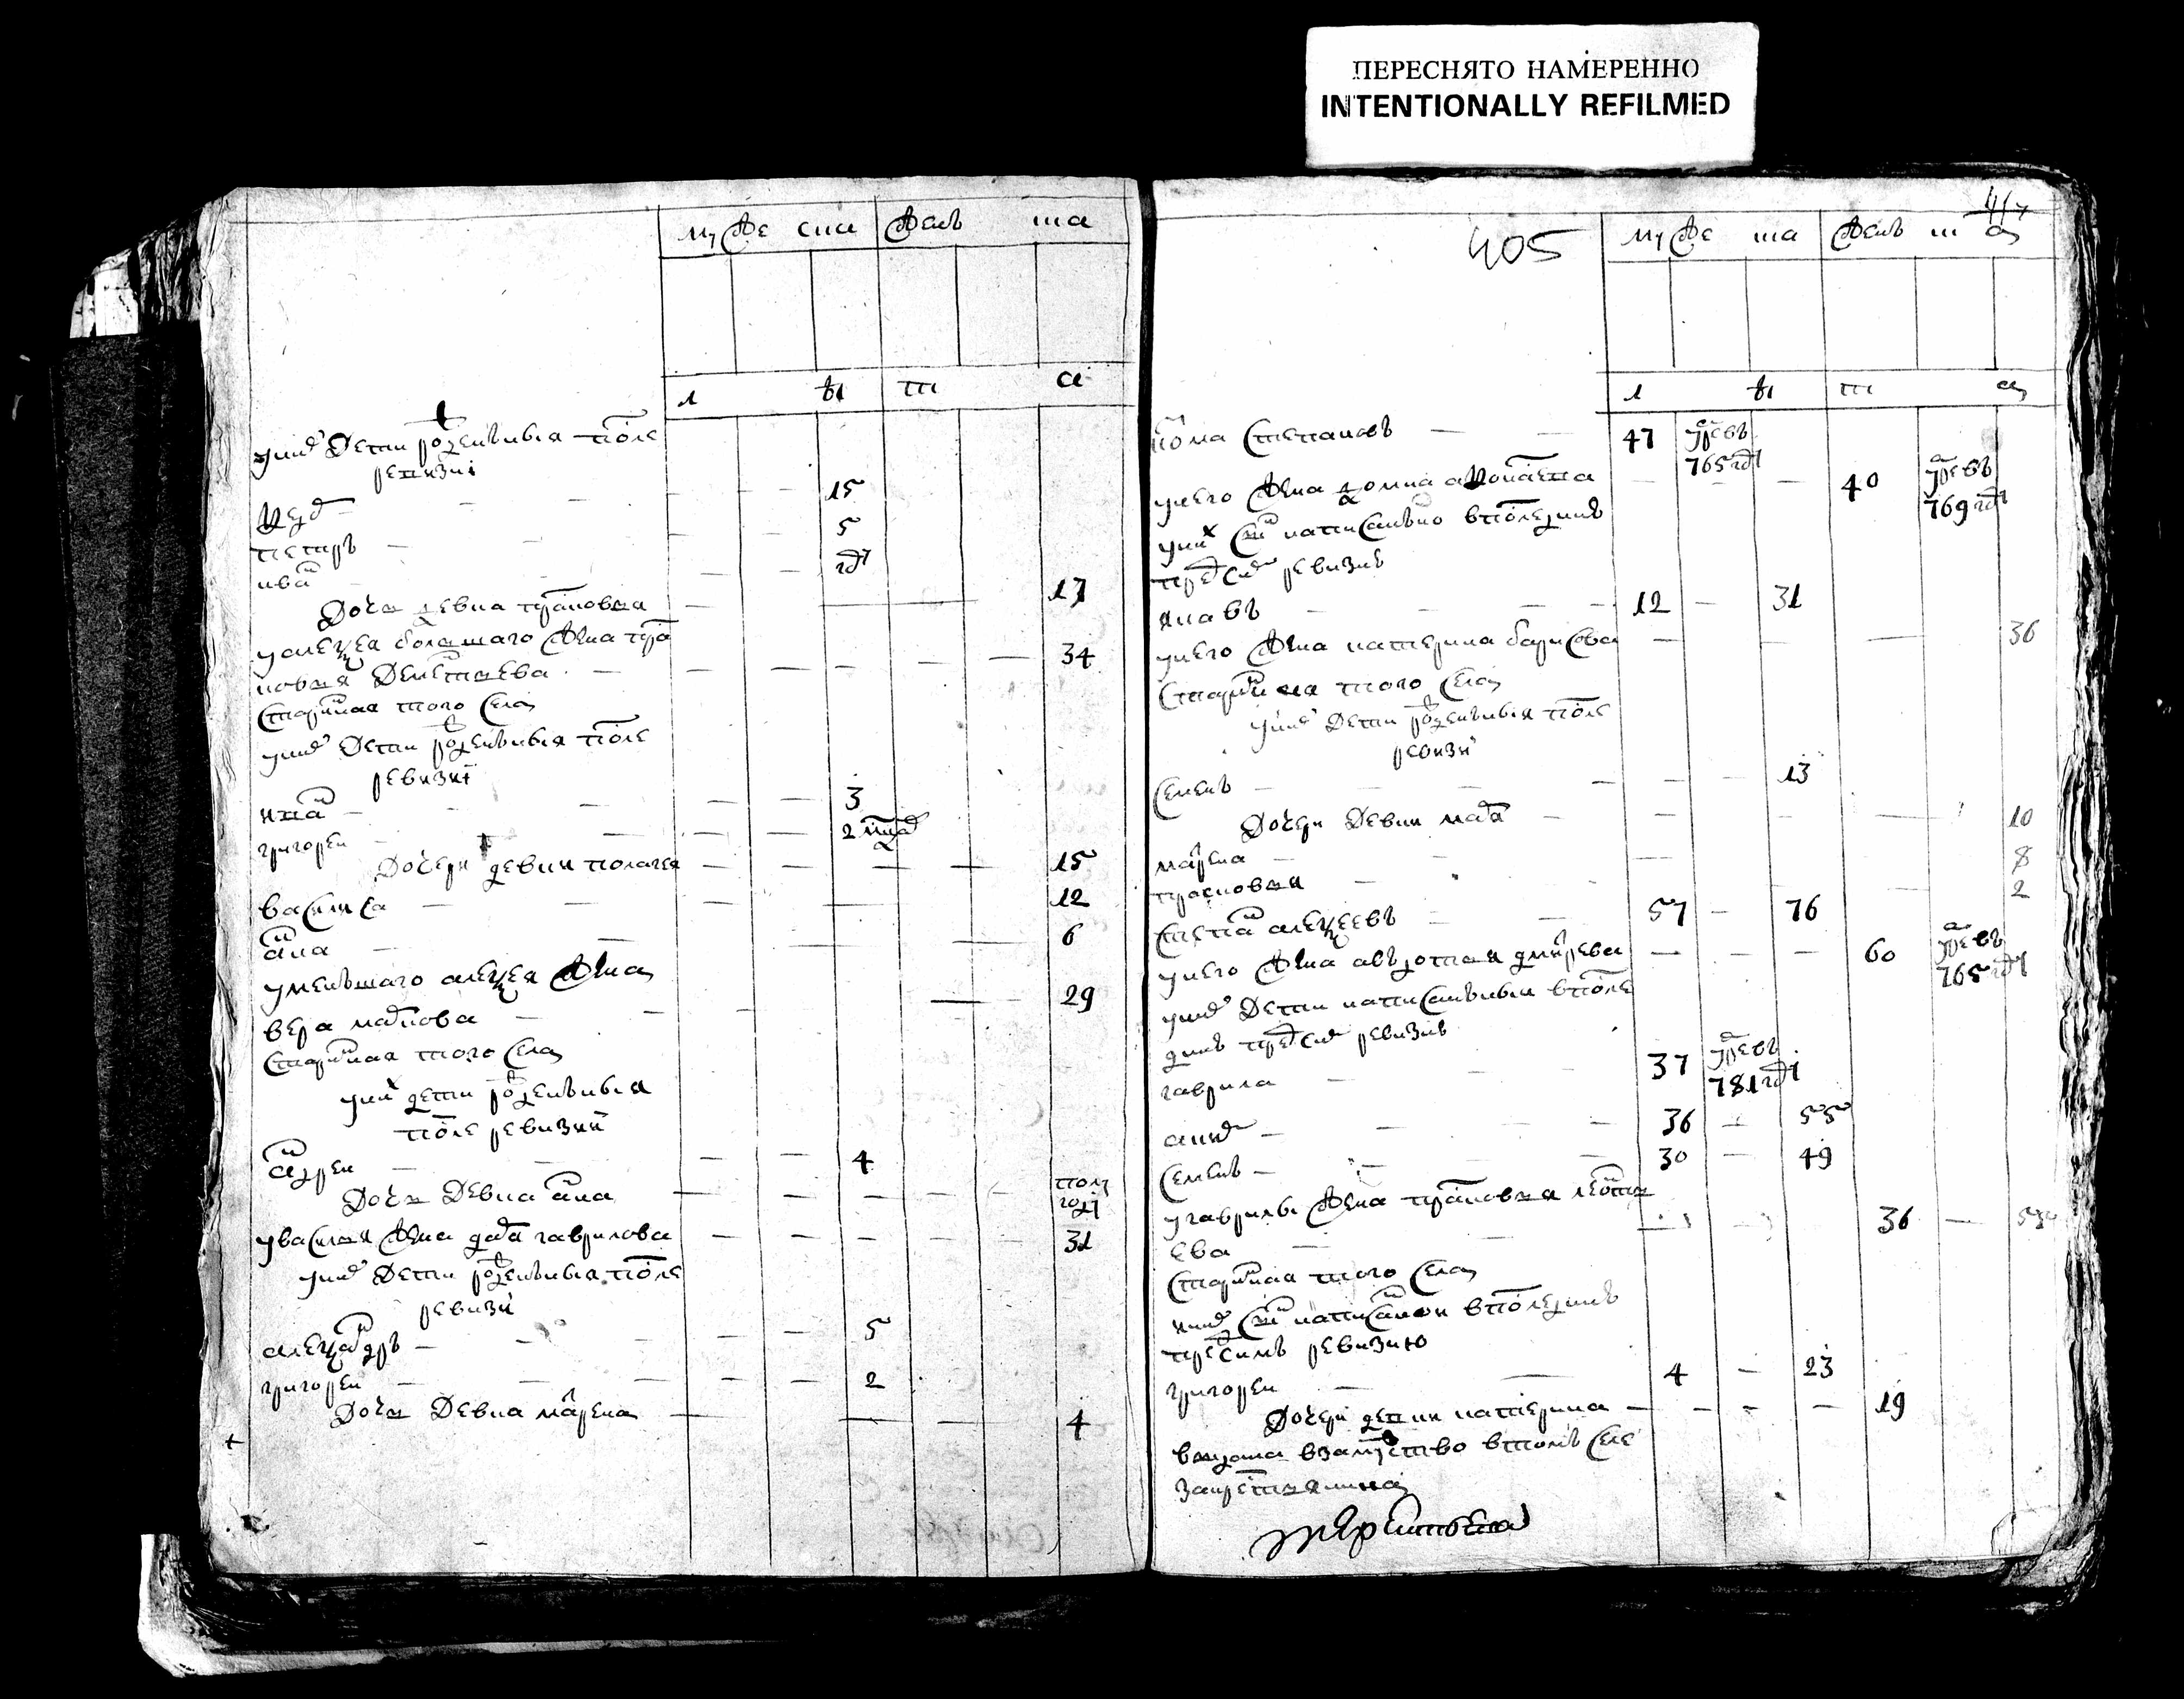 ПЕРЕСНЯТО НАМЕРЕННО
INTENTIONALLY REFILMED
муже ска женъ ска
л ъ т а
у них дети рожденныя после
ревизиї
15
петръ — 5
иван — год
дочь девка прасковья — 17
у алексея большаго жена прас
ковья Дементьева — 34
старинная того села
у них дети рожденныя после
ревизиї
иван — 3
григореи — 2 млад
дочери девки пелагея — 15
василиса — 12
анна — 6
у меньшаго алексея жена
вера маркова — 29
старинная того села
у них дети рожденныя
после ревизии
андреи — 4
дочь девка анна — пол
году
у василья жена дарья гаврилова — 31
у них дети рожденныя после
ревизи
александръ — 5
григореи — 2
дочь девка марена — 4
405 417
муже ска женъ ска
л ъ т а
фома степановъ — 47 умре въ
765 год
у него жена домна — 40 умре въ
769 год
у них сын написанной в последнюю
пред сим ревизию
яковъ — 12 — 31
у него жена катерина барисова — 36
старинная того села
у них дети рожденныя после
ревизи
семенъ — 13
дочери девки — 10
марена — 8
прасковья — 2
степан алексеевъ — 57 — 76
у него жена авдотья — 60 умре въ
765 год
у них дети написанныя в после
днюю пред сим ревизию
гаврила — 37 умре въ
781 год
36 — 55
семенъ — 30 — 49
у гаврилы жена прасковья леонть
ева — 36 — 55
старинная того села
у них сын написанной в последнюю
пред сим ревизию
григореи — 4 — 23
дочери девки катерина — 19
выдана в замужство в томъ селе
за крестьянина